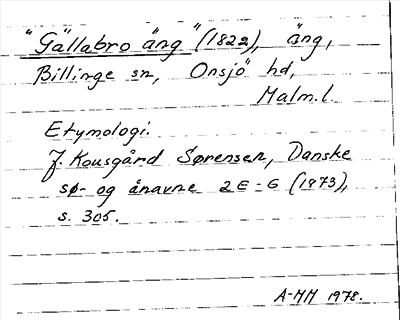 "Gällabro äng" (1822), äng,
Billinge sn, Onsjö hd,
Malm.l.
Etymologi.
J. Kousgård Sørensen, Danske
sø- og ånavne 2 E-G (1973),
s. 305.
A-MM 1978.